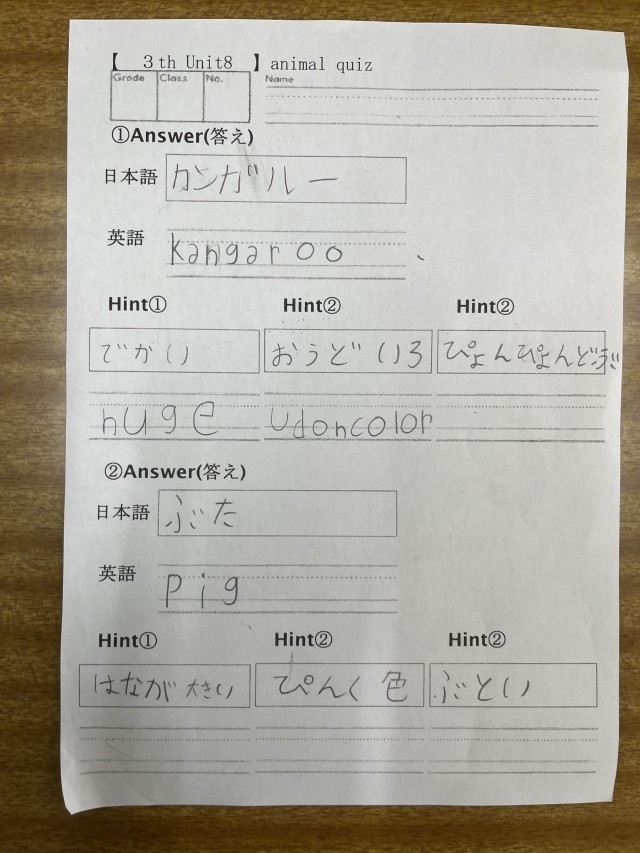 【 3th Unit8 】animal quiz
Grade Class No. Name
①Answer(答え)
日本語 カンガルー
英語 kangaroo
Hint① Hint② Hint②
でかい おうどいろ ぴょんぴょんど
huge udoncolor
②Answer(答え)
日本語 ぶた
英語 pig
Hint① Hint② Hint②
はなが大きい ぴんく色 ぶとい